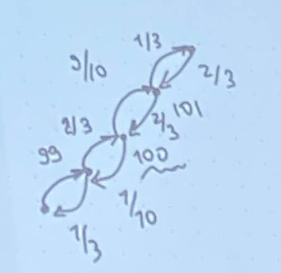 1/3
9/10
2/3
2/3
101
2/3
99
100
1/10
1/3